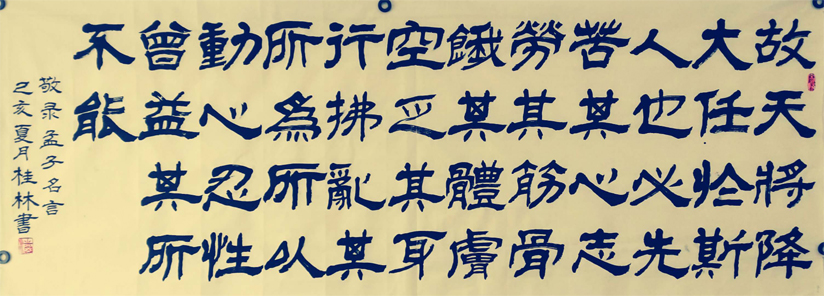 故天將降
大任於斯
人也必先
苦其心志
勞其筋骨
餓其體膚
空乏其身
行拂亂其
所為所以
動心忍性
曾益其所
不能
敬录孟子名言
己亥夏月桂林書